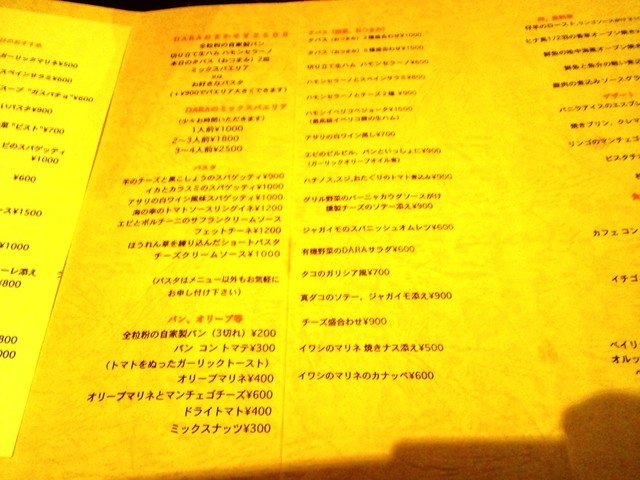 ガーリックマリネ¥500
スペインサラミ¥600
スープ "ガスパチョ"¥600
"ピスト"¥700
ピのスパゲッティ
¥1000
¥600
¥1500
¥1000
添え
¥800
全粒粉の自家製パン
切り立て生ハム ハモンセラーノ
本日のタパス（おつまみ）2品
ミックスパエリア
お好きなパスタ
(+¥900でパエリア大きくできます)
DARAのミックスパエリア
(少々お時間いただきます)
1人前¥1000
2〜3人前¥1800
3〜4人前¥2500
パスタ
羊のチーズと黒こしょうのスパゲッティ¥900
イカとカラスミのスパゲッティ¥1000
アサリの白ワイン風味スパゲッティ¥1000
海の幸のトマトソースリングイネ¥1200
エビとポルチーニのサフランクリームソース
フェットチーネ¥1200
ほうれん草を練り込んだショートパスタ
チーズクリームソース¥1000
(パスタはメニュー以外もお気軽に
お申し付け下さい)
パン、オリーブ等
全粒粉の自家製パン（3切れ）¥200
パン コン トマテ¥300
(トマトをぬったガーリックトースト)
オリーブマリネ¥400
オリーブマリネとマンチェゴチーズ¥600
ドライトマト¥400
ミックスナッツ¥300
切り立て生ハム ハモンセラーノ¥600
ハモンセラーノとスペインサラミ¥600
ハモンセラーノとチーズ2種 ¥900
ハモンイベリコベジョータ¥1500
(最高級イベリコ豚の生ハム)
アサリの白ワイン蒸し¥700
エビのピルピル、パンといっしょに¥900
(ガーリックオリーブオイル煮)
ハチノス,スジ,おたぐりのトマト煮込み¥900
グリル野菜のバーニャカウダソースがけ
燻製チーズのソテー添え¥900
ジャガイモのスパニッシュオムレツ¥600
有機野菜のDARAサラダ¥600
タコのガリシア風¥700
真ダコのソテー、ジャガイモ添え¥900
チーズ盛合わせ¥900
イワシのマリネ 焼きナス添え¥500
イワシのマリネのカナッペ¥600
デザート
バニラアイスのエスプレ
焼きプリン、クレマ
リンゴのマンチェゴ
ピスタチ
カフェ コン
イチゴ
ベイリ
オルッ